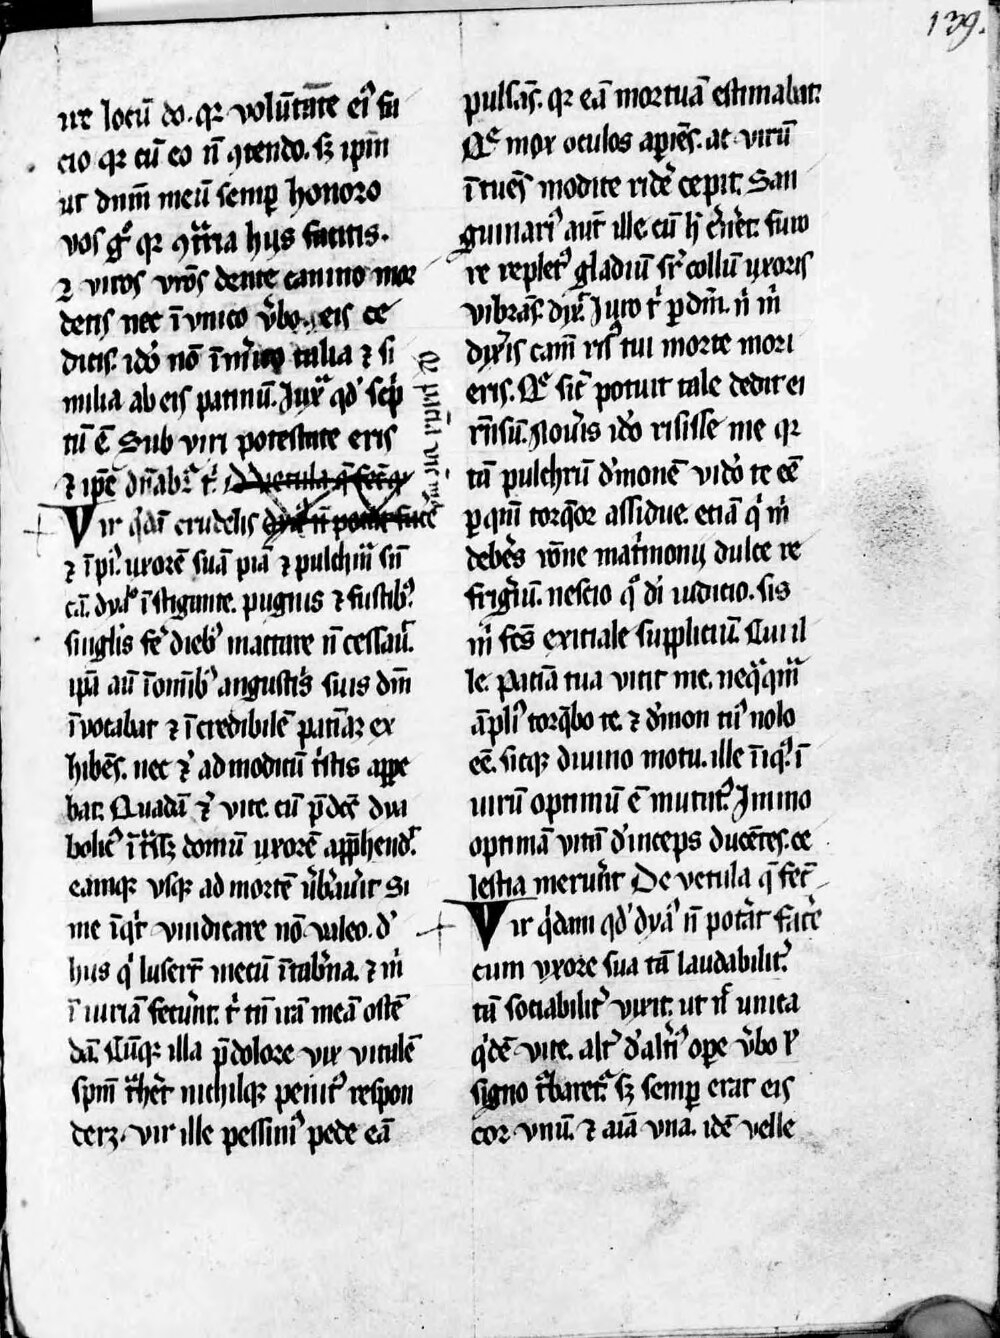 139.
ire locū do. qꝛ volūtatē eiꝰ fa
cio qꝛ cū eo n̄ ꝯtendo. sꝫ ipm̄
ut dn̄m meū semꝑ honoro
vos gͦ qꝛ ꝯtͣria hijs facitis.
⁊ viros vr̄os dente canino mor
detis nec ī vnico v̓bo eis ce
ditis. idō nō talia ⁊ si
milia ab eis patimī. Juxͣ qd̓
tū ē Sub viri potestate eris
⁊ ip̄e dn̄abr̄ t̓.
Vir q̓dā crudelis
⁊ īpiꝰ. uxorē suā piā ⁊
cā. dyaꝉo īstigante. pugnis ⁊ fustibꝰ
singlis fe̓ diebꝰ mactare n̄ cessaū.
ipā aū ī om̄ibꝰ angustijs suis dm̄
īvocabat ⁊ īcredibilē patiāꝫ ex
hibēs. nec ad modicū tͥstis appe
bat. Quadā vice. cū p̄dcē dya
bolicꝰ domū uxorē appͣhend.
eamqꝫ vsqꝫ ad mortē v̓bau̓it Si
me īqͥt vindicare nō valeo. d̓
hiis qͥ luserūt mecū ī tab̓na. ⁊ m̓
īiuriā fec̓unt. t̓ tn̄ irā meā ostē
dā. Cūqꝫ illa p̄ dolore vix vitalē
spm̄ tͣhe̓t nichilqꝫ penitꝰ respon
deꝫ. vir ille pessimꝰ pede eā
pulsās. qꝛ eā mortuā estimabat.
Que mox oculos apiēs. ac virū
ītuēs modice ride̓ cepit. San
guinariꝰ aut̄ ille cū h̓ furo
re repletꝰ gladiū sr̄ collū uxoris
vibrās. dix̄. Juro t̓ ꝑ dm̄. n̄ m̓
dix̓is cām risꝰ tui morte mori
eris. Que sic̄ potuit tale dedit ei
rn̄sū. Nov̓is idō risisse me qꝛ
tā pulchrū d̓monē vidō te eē
ꝑ quē torqͦor assidue. etiā qͥ m̓
debēs rōne mat̓monij dulce re
frig̓iū. nescio qͦ di iudicio. sis
m̓ fc̄s exitiale suppliciū. Cui il
le. Paciā tua vicit me. neqͣqͣm
āpliꝰ torqͣbo te. ⁊ d̓mon tuꝰ nolo
eē. sicqꝫ divino motu. ille īiqꝰ. ī
virū optimū ē mutatꝰ. Immo
optimā vitā d̓inceps ducētes. ce
lestia meru̓nt De vetula q̄ fec̄
Vir q̓dam qd̓ dyaꝰ n̄ pot̓at face̓
cum vxore sua tā laudabilitꝰ
tā sociabilitꝰ vixit. ut n̄ unica
q̓dē vice. alt̓ d̓ alt̓iꝰ oꝑe v̓bo ꝉ
signo tͣbaretꝰ. sꝫ semꝑ erat eis
cor vnū. ⁊ aīa vna. idē velle